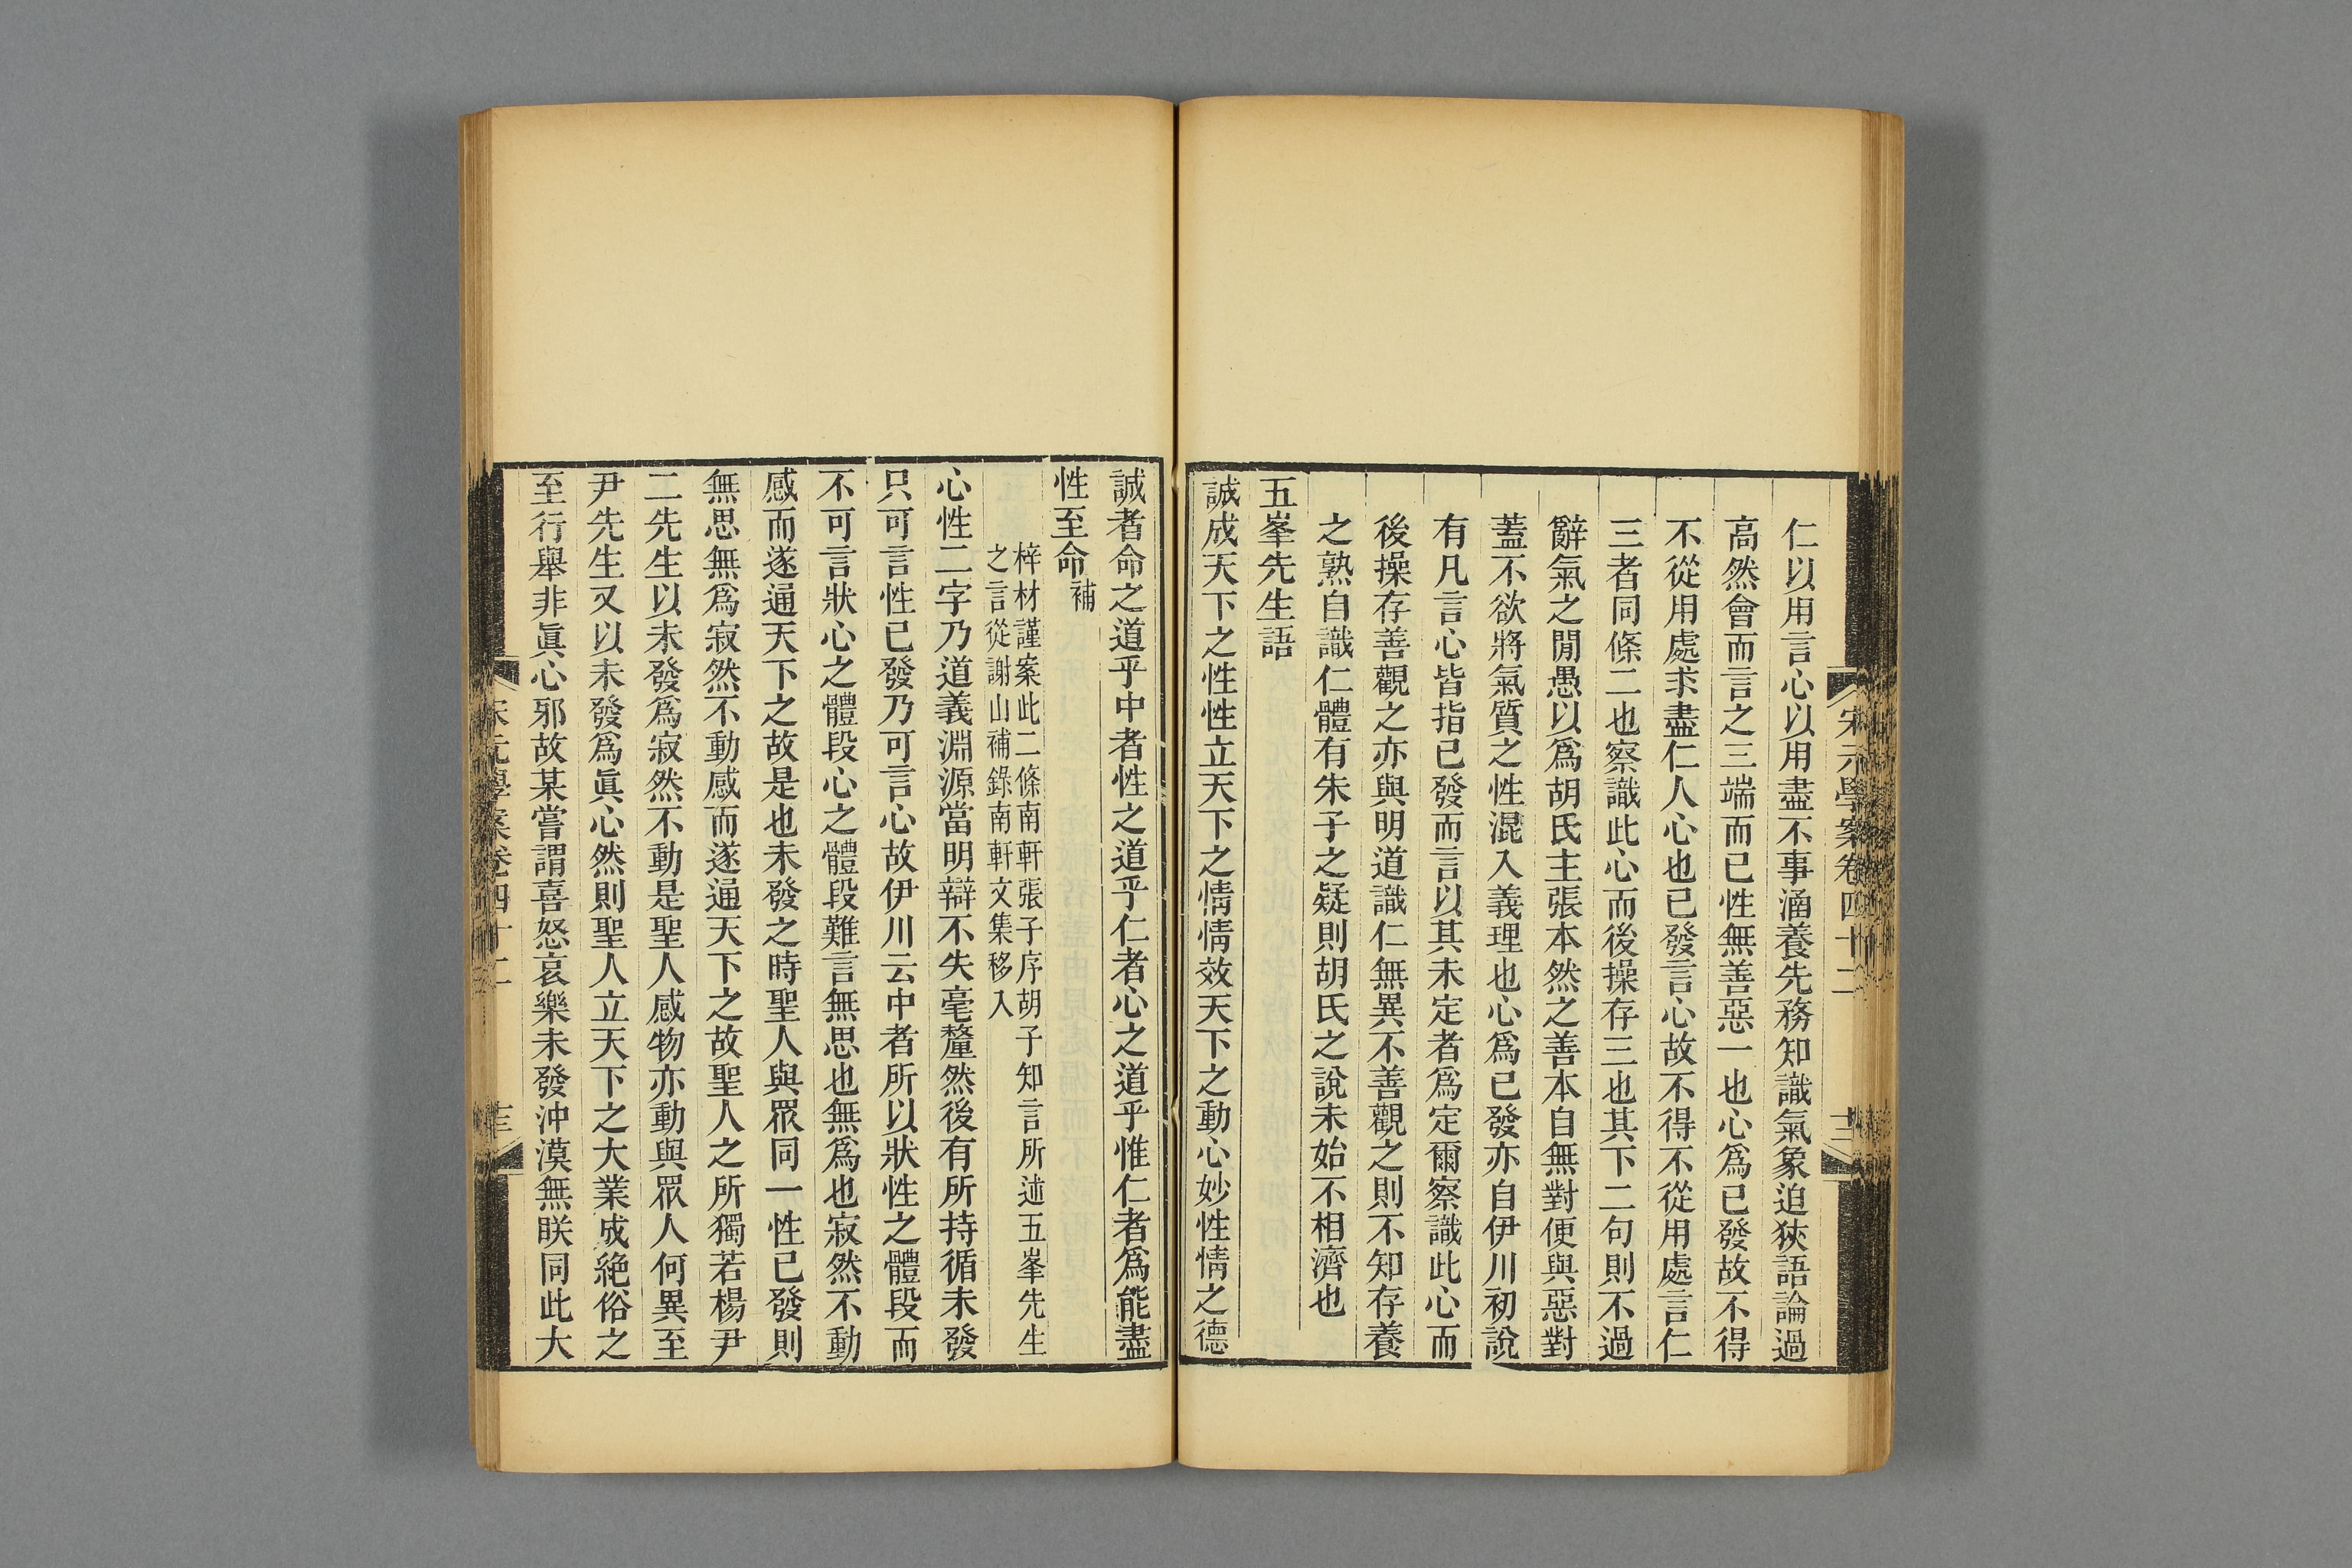 宋元學案卷四十二
仁以用言心以用盡不事涵養先務知識氣象迫狹語論過
高然會而言之三端而已性無善惡一也心爲已發故不得
不從用處求盡仁人心也已發言心故不得不從用處言仁
三者同條二也察識此心而後操存三也其下二句則不過
辭氣之閒愚以爲胡氏主張本然之善本自無對便與惡對
蓋不欲將氣質之性混入義理也心爲已發亦自伊川初說
有凡言心皆指已發而言以其未定者爲定爾察識此心而
後操存善觀之亦與明道識仁無異不善觀之則不知存養
之熟自識仁體有朱子之疑則胡氏之說未始不相濟也
五峯先生語
誠成天下之性性立天下之情情效天下之動心妙性情之德
誠者命之道乎中者性之道乎仁者心之道乎惟仁者爲能盡
性至命補
梓材謹案此二條南軒張子序胡子知言所述五峯先生
之言從謝山補錄南軒文集移入
心性二字乃道義淵源當明辯不失毫釐然後有所持循未發
只可言性已發乃可言心故伊川云中者所以狀性之體段而
不可言狀心之體段心之體段難言無思也無爲也寂然不動
感而遂通天下之故是也未發之時聖人與眾同一性已發則
無思無爲寂然不動感而遂通天下之故聖人之所獨若楊尹
二先生以未發爲寂然不動是聖人感物亦動與眾人何異至
尹先生又以未發爲眞心然則聖人立天下之大業成絕俗之
至行舉非眞心邪故某嘗謂喜怒哀樂未發沖漠無朕同此大
宋元學案卷四十二